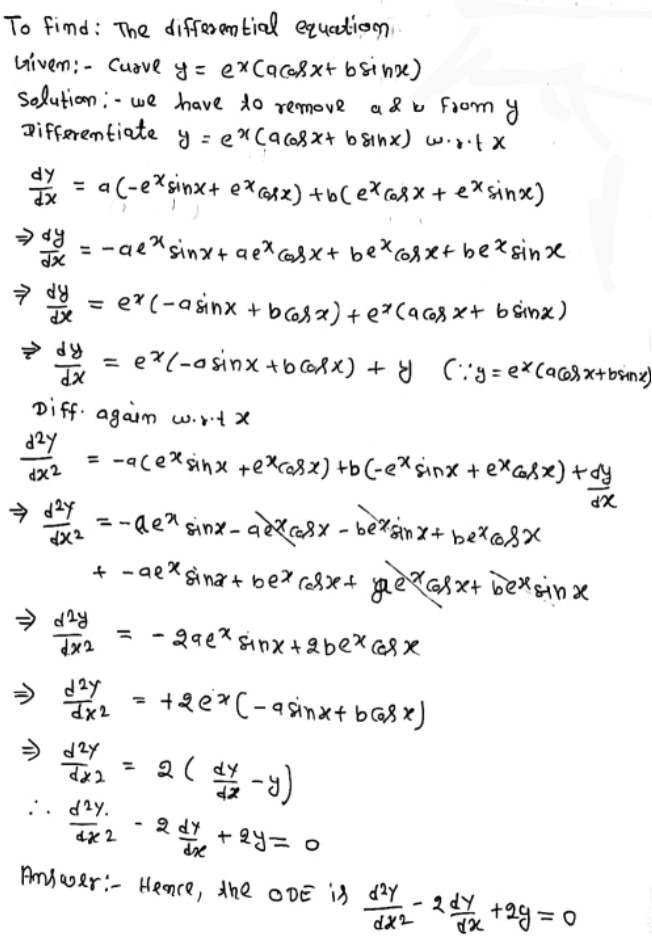 To find: The differential equation.
Given:- Curve y = eˣ(acosx + bsinx)
Solution:- we have to remove a & b from y
Differentiate y = eˣ(acosx + bsinx) w.r.t x
dy/dx = a(-eˣsinx + eˣcosx) + b(eˣcosx + eˣsinx)
⇒ dy/dx = -aeˣsinx + aeˣcosx + beˣcosx + beˣsinx
⇒ dy/dx = eˣ(-asinx + bcosx) + eˣ(acosx + bsinx)
⇒ dy/dx = eˣ(-asinx + bcosx) + y (∵ y = eˣ(acosx + bsinx)
Diff. again w.r.t x
d2y/dx2 = -a(eˣsinx + eˣcosx) + b(-eˣsinx + eˣcosx) + dy/dx
⇒ d2y/dx2 = -aeˣsinx - aeˣcosx - beˣsinx + beˣcosx
+ -aeˣsinx + beˣcosx + aeˣcosx + beˣsinx
⇒ d2y/dx2 = -2aeˣsinx + 2beˣcosx
⇒ d2y/dx2 = +2eˣ(-asinx + bcosx)
⇒ d2y/dx2 = 2(dy/dx - y)
∴ d2y./dx2 - 2dy/dx + 2y = 0
Answer:- Hence, the ODE is d2y/dx2 - 2dy/dx + 2y = 0